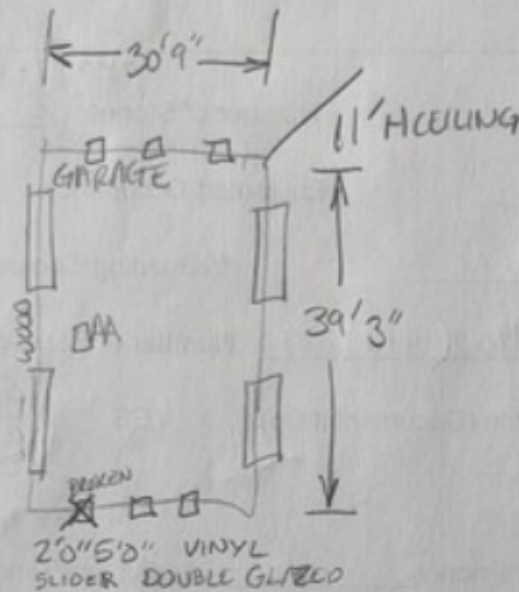 30'9"
11' H CEILING
GARAGE
AA
39'3"
BROKEN
2'0"5'0" VINYL
SLIDER DOUBLE GLAZED
YES